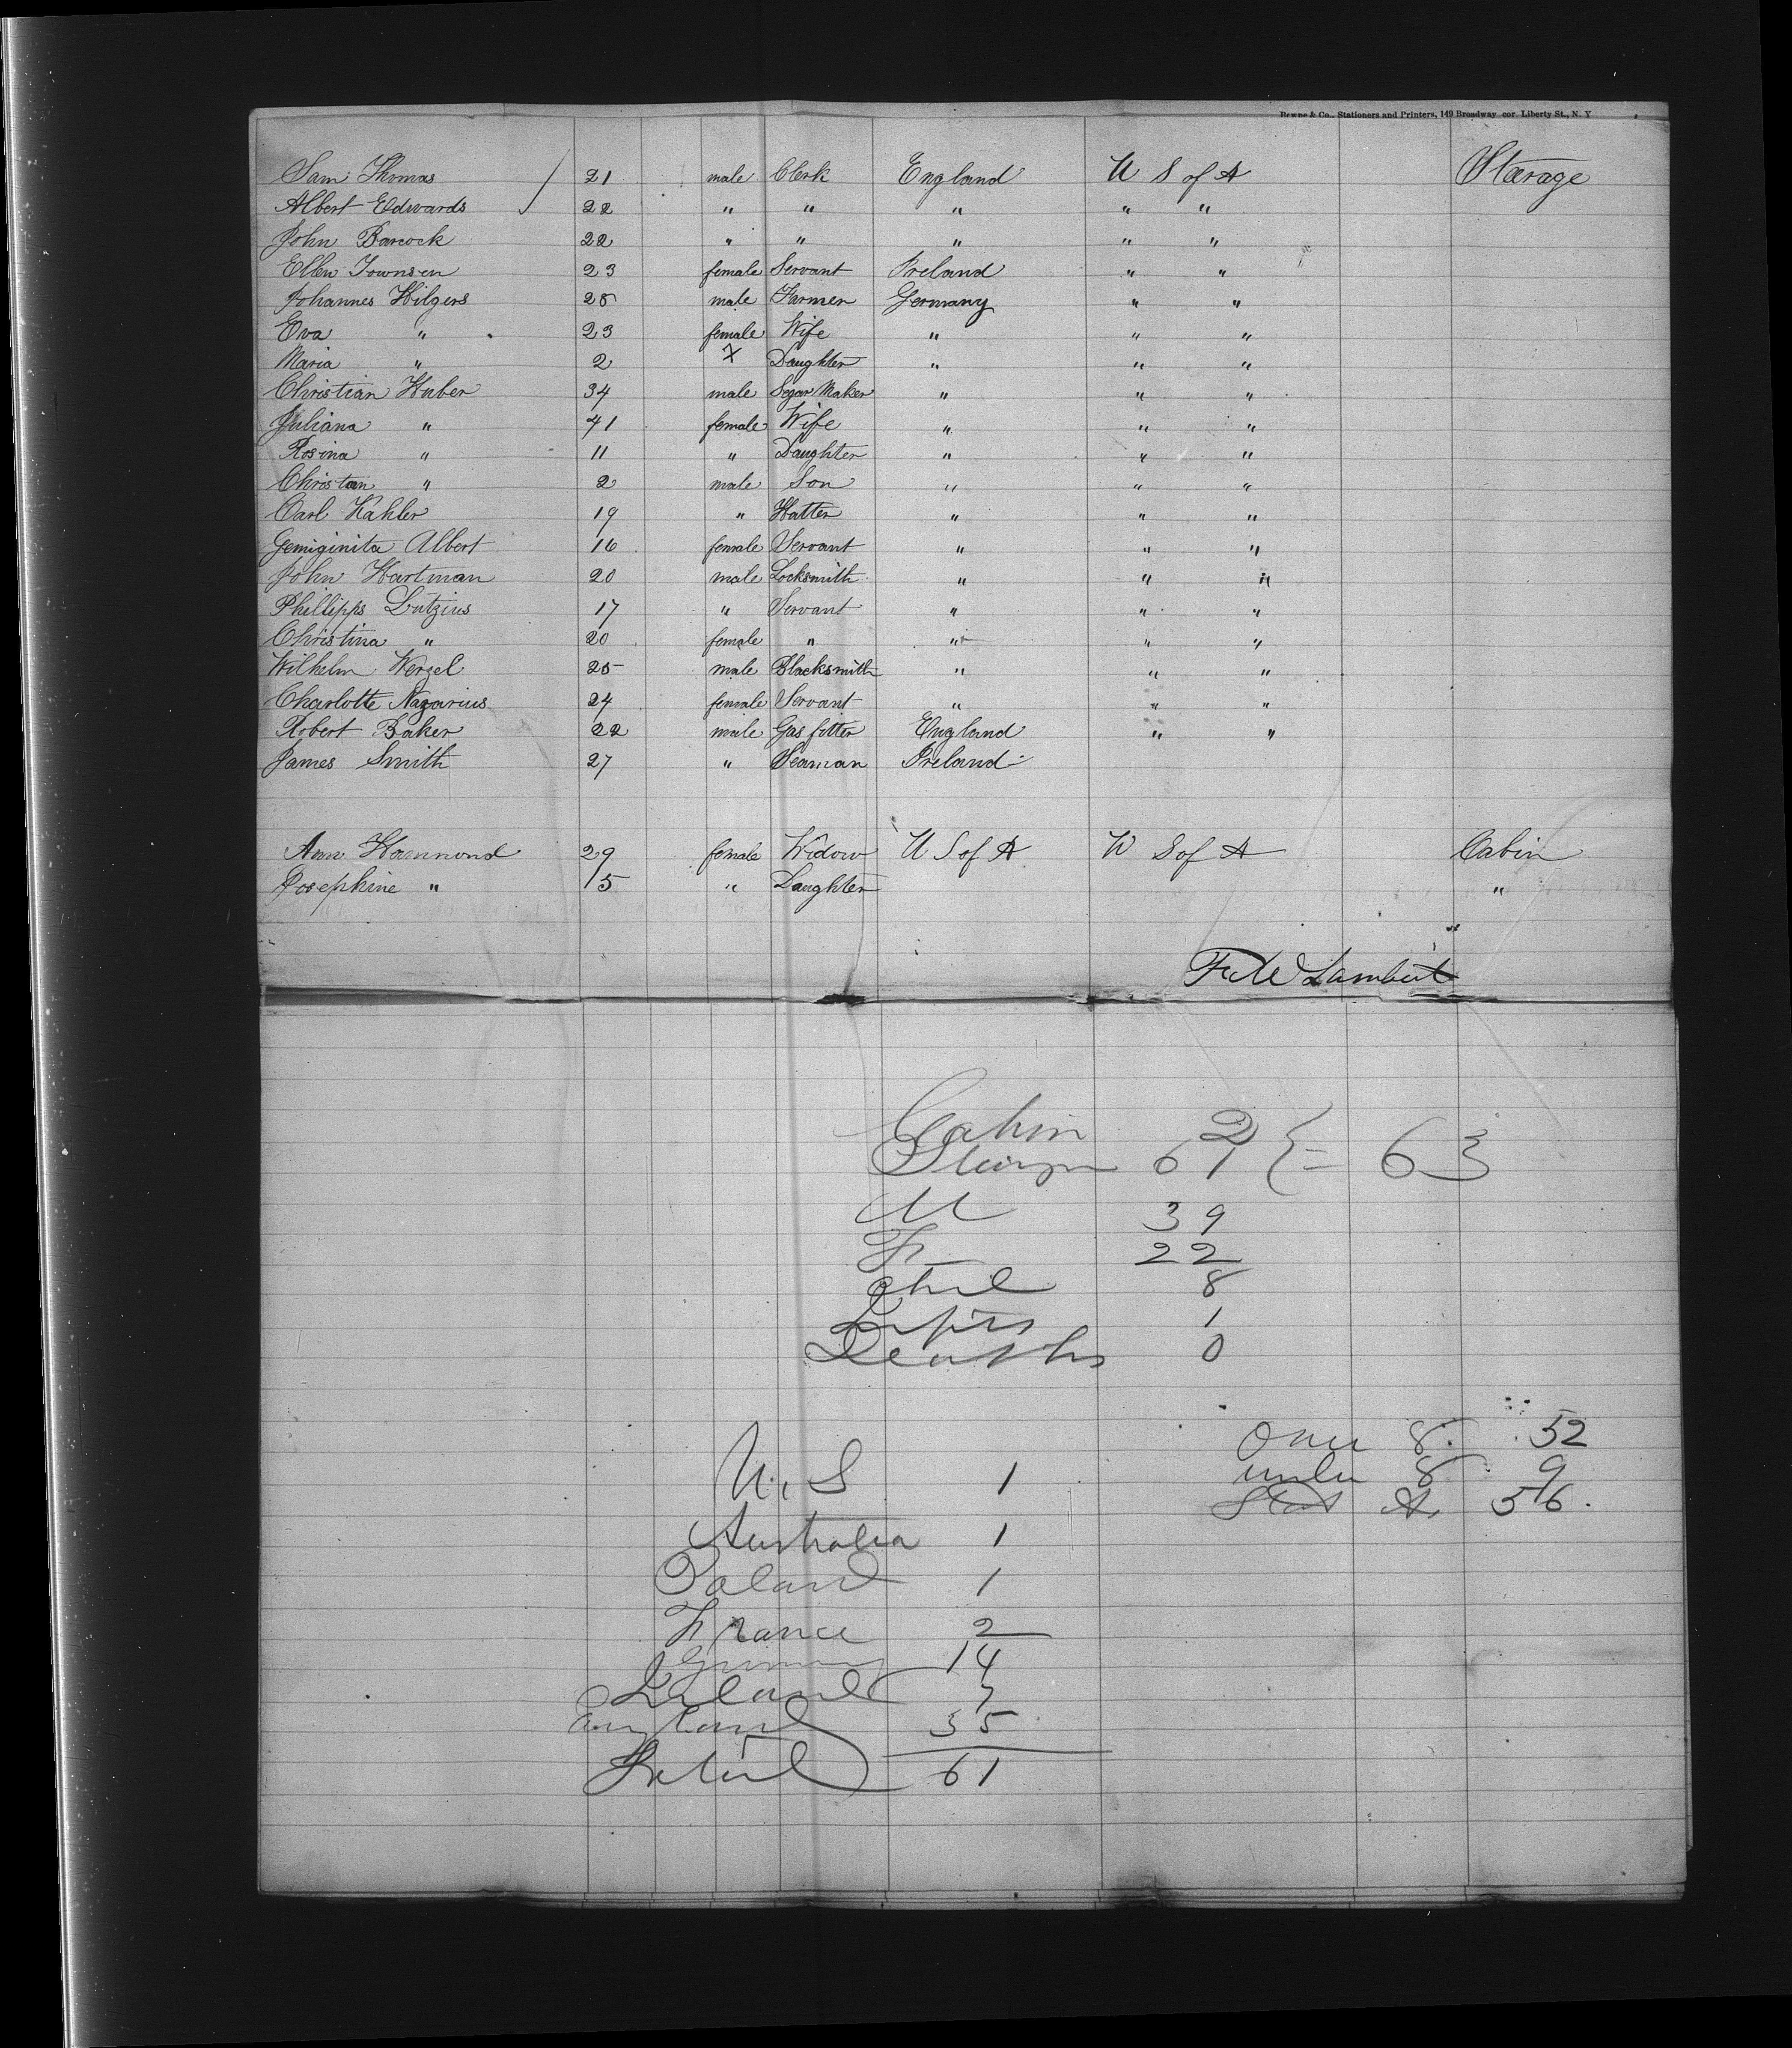 Bowne & Co., Stationers and Printers, 149 Broadway cor Liberty St., N. Y
Sam Thomas 21 male Clerk England U S of A Stearage
Albert Edwards 22 " " " " "
John Barcock 22 " " " " "
Ellen Townsen 23 female Servant Ireland " "
Johannes Hilgers 25 male Farmer Germany " "
Eva " 23 female Wife " " "
Maria " 2 x Daughter " " "
Christian Huber 34 male Segar Maker " " "
Juliana " 41 female Wife " " "
Rosina " 11 " Daughter " " "
Christan " 2 male Son " " "
Carl Kahler 19 " Hatter " " "
Gemiginita Albert 16 female Servant " " "
John Hartman 20 male Locksmith " " "
Phillipps Lutzius 17 " Servant " " "
Christina " 20 female " " " "
Wilhelm Wenzel 25 male Blacksmith " " "
Charlotte Nazarius 24 female Servant " " "
Robert Baker 22 male Gas fitter England " "
James Smith 27 " Seaman Ireland
Ann Hammond 29 female Widow U S of A U S of A Cabin
Josephine " 15 " Daughter "
Lambert
Cabin 2
61 } = 63
M 39
F 22
Chil 8
1
Deaths 0
Over 8 52
U. S 1
under 8 9
A 56.
Australia 1
Poland 1
France 2
Germany 14
Ireland 7
England 35
Total 61